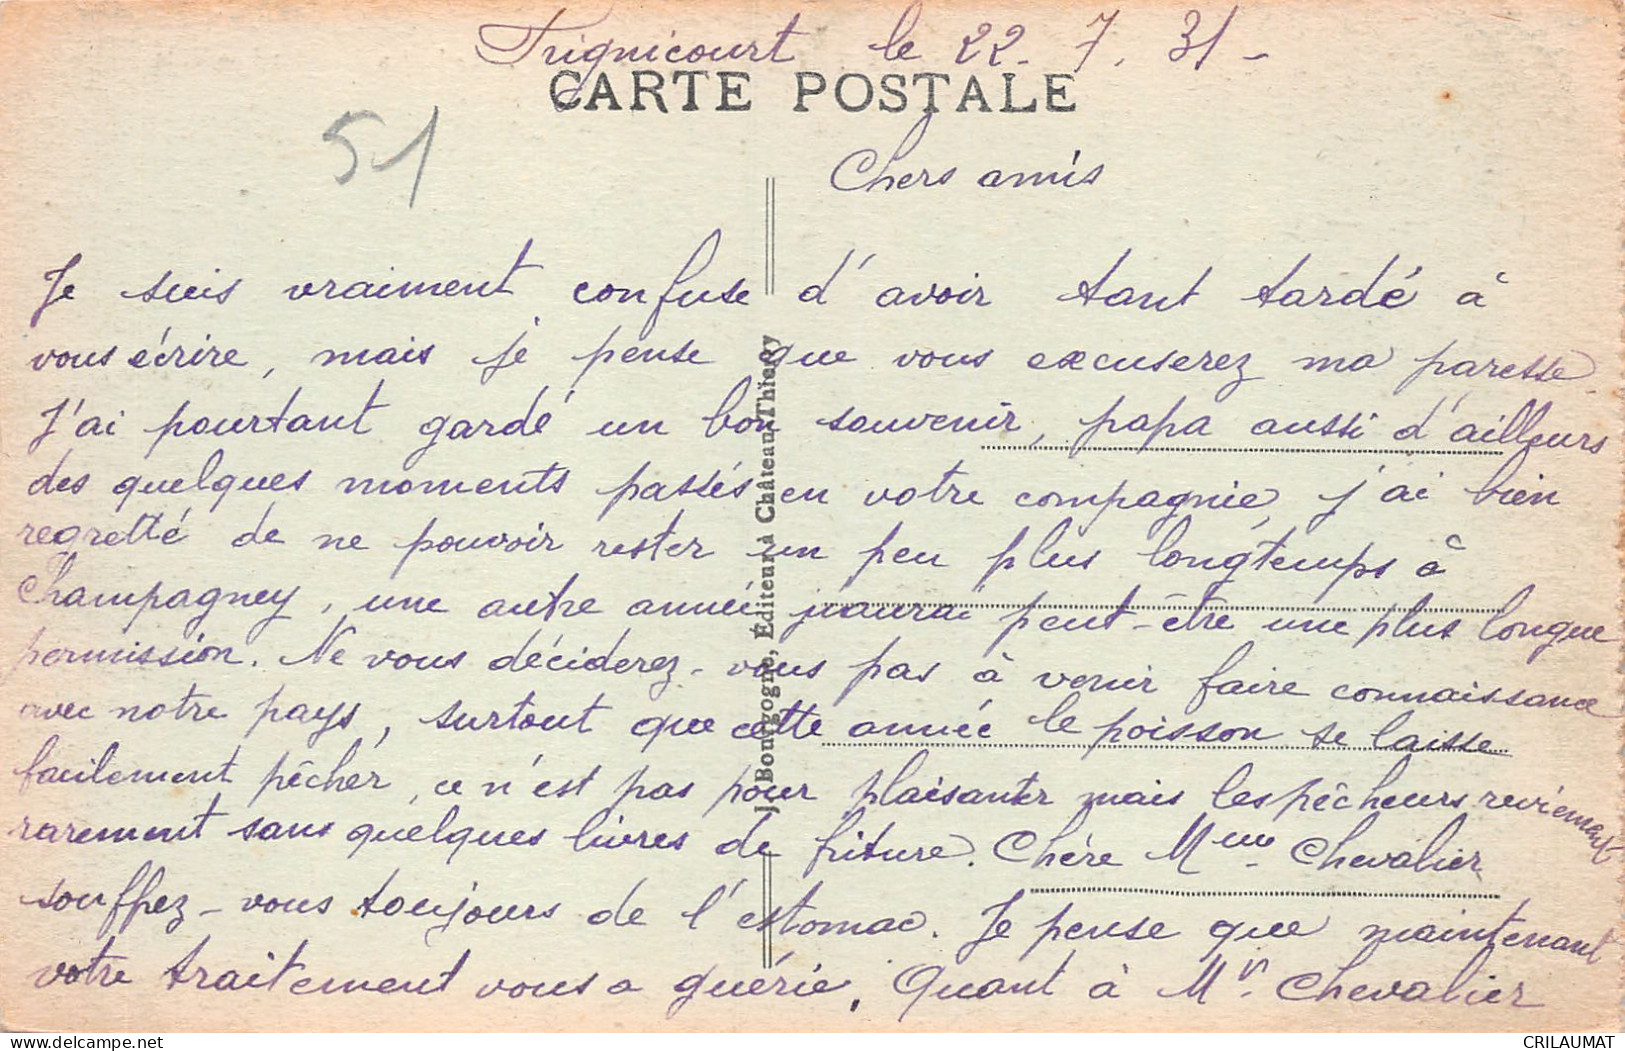 Frignicourt le 22. 7. 31 -
CARTE POSTALE
51
Chers amis
Je suis vraiment confuse d'avoir tant tardé à
vous écrire, mais je pense que vous excuserez ma paresse.
J'ai pourtant gardé un bon souvenir, papa aussi d'ailleurs
des quelques moments passés en votre compagnie, j'ai bien
regretté de ne pouvoir rester un peu plus longtemps à
Champagney, une autre année j'aurai peut-être une plus longue
permission. Ne vous déciderez-vous pas à venir faire connaissance
avec notre pays, surtout que cette année le poisson se laisse
facilement pêcher, ce n'est pas pour plaisanter mais les pêcheurs reviennent
rarement sans quelques livres de friture. Chère Mme Chevalier
souffrez-vous toujours de l'estomac. Je pense que maintenant
votre traitement vous a guérie. Quant à Mr. Chevalier
J. Bourgogne, Éditeur à Château-Thierry
delcampe.net
CRILAUMAT